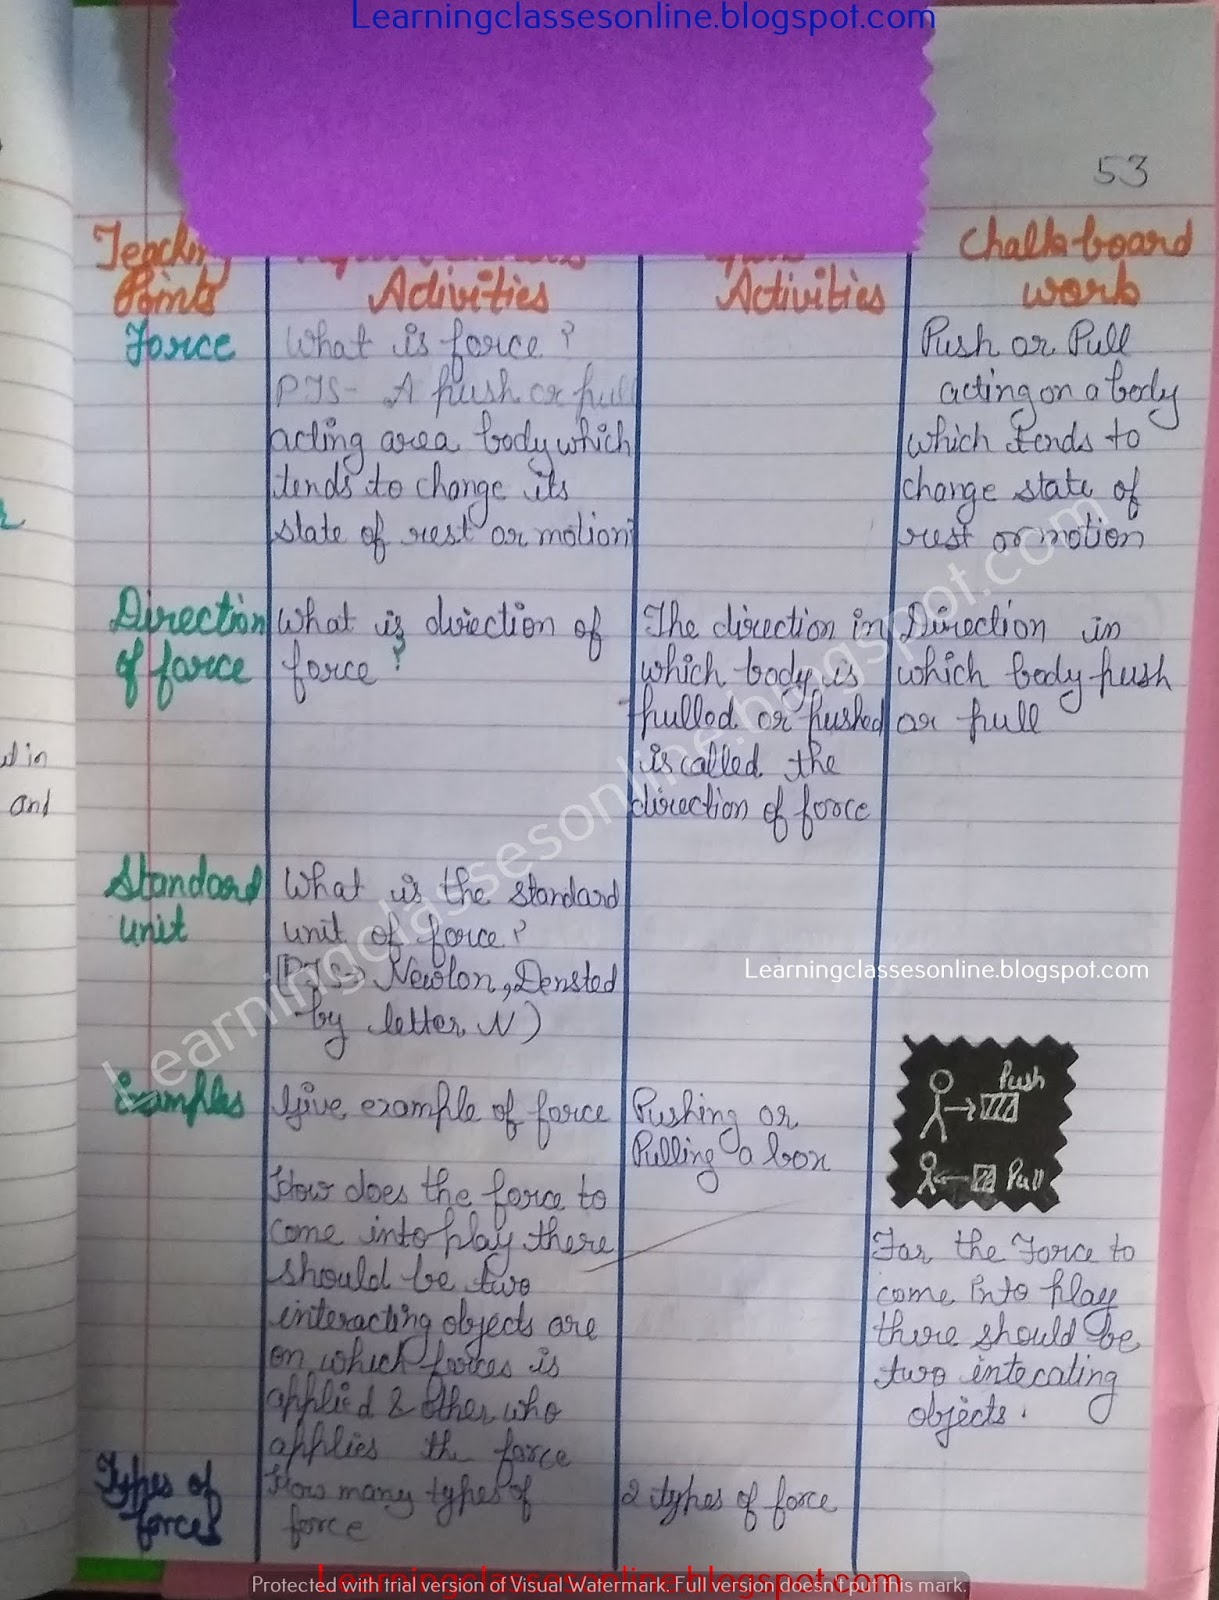 Learningclassesonline.blogspot.com
53
Teaching
Points
Activities
Activities
Chalk-board
work
Force
What is force?
PTS- A push or pull
acting area body which
tends to change its
state of rest or motion
Push or Pull
acting on a body
which tends to
change state of
rest or motion
Direction
of force
What is direction of
force?
The direction in
which body is
pulled or pushed
is called the
direction of force
Direction in
which body push
or pull
ul in
and
Standard
unit
What is the standard
unit of force?
(PTS→ Newton, Densted
by letter N)
Learningclassesonline.blogspot.com
Learningclassesonline.blogspot.com
Examples
Give example of force
Pushing or
Pulling a box
Push
Pull
How does the force to
come into play there
should be two
interacting objects are
on which forces is
applied & other who
applies the force
For the Force to
come into play
there should be
two intecating
objects.
Types of
forces
How many types of
force
2 types of force
Learningclassesonline.blogspot.com
Protected with trial version of Visual Watermark. Full version doesn't put this mark.